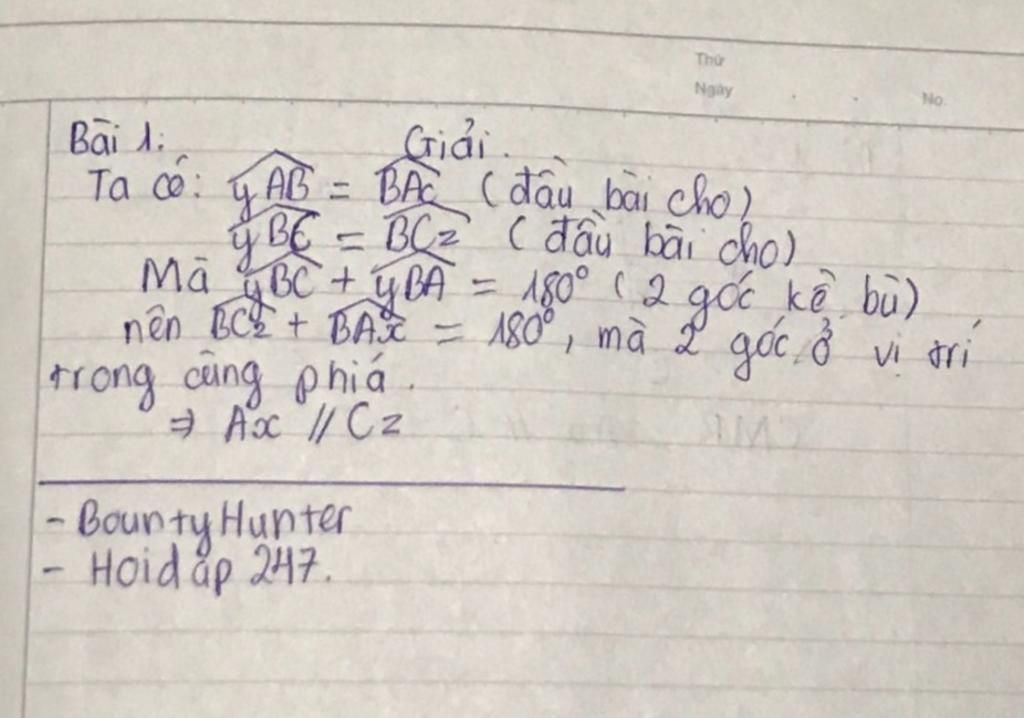 Thứ
Ngày . . No.
Bài 1: Giải.
Ta có: yAB = BAc (đầu bài cho)
yBC = BCz (đầu bài cho)
Mà yBC + yBA = 180° (2 góc kề bù)
nên BCz + BAx = 180°, mà 2 góc ở vị trí
trong cùng phiá.
⇒ Ax // Cz
- Bounty Hunter
- Hoidap 247.